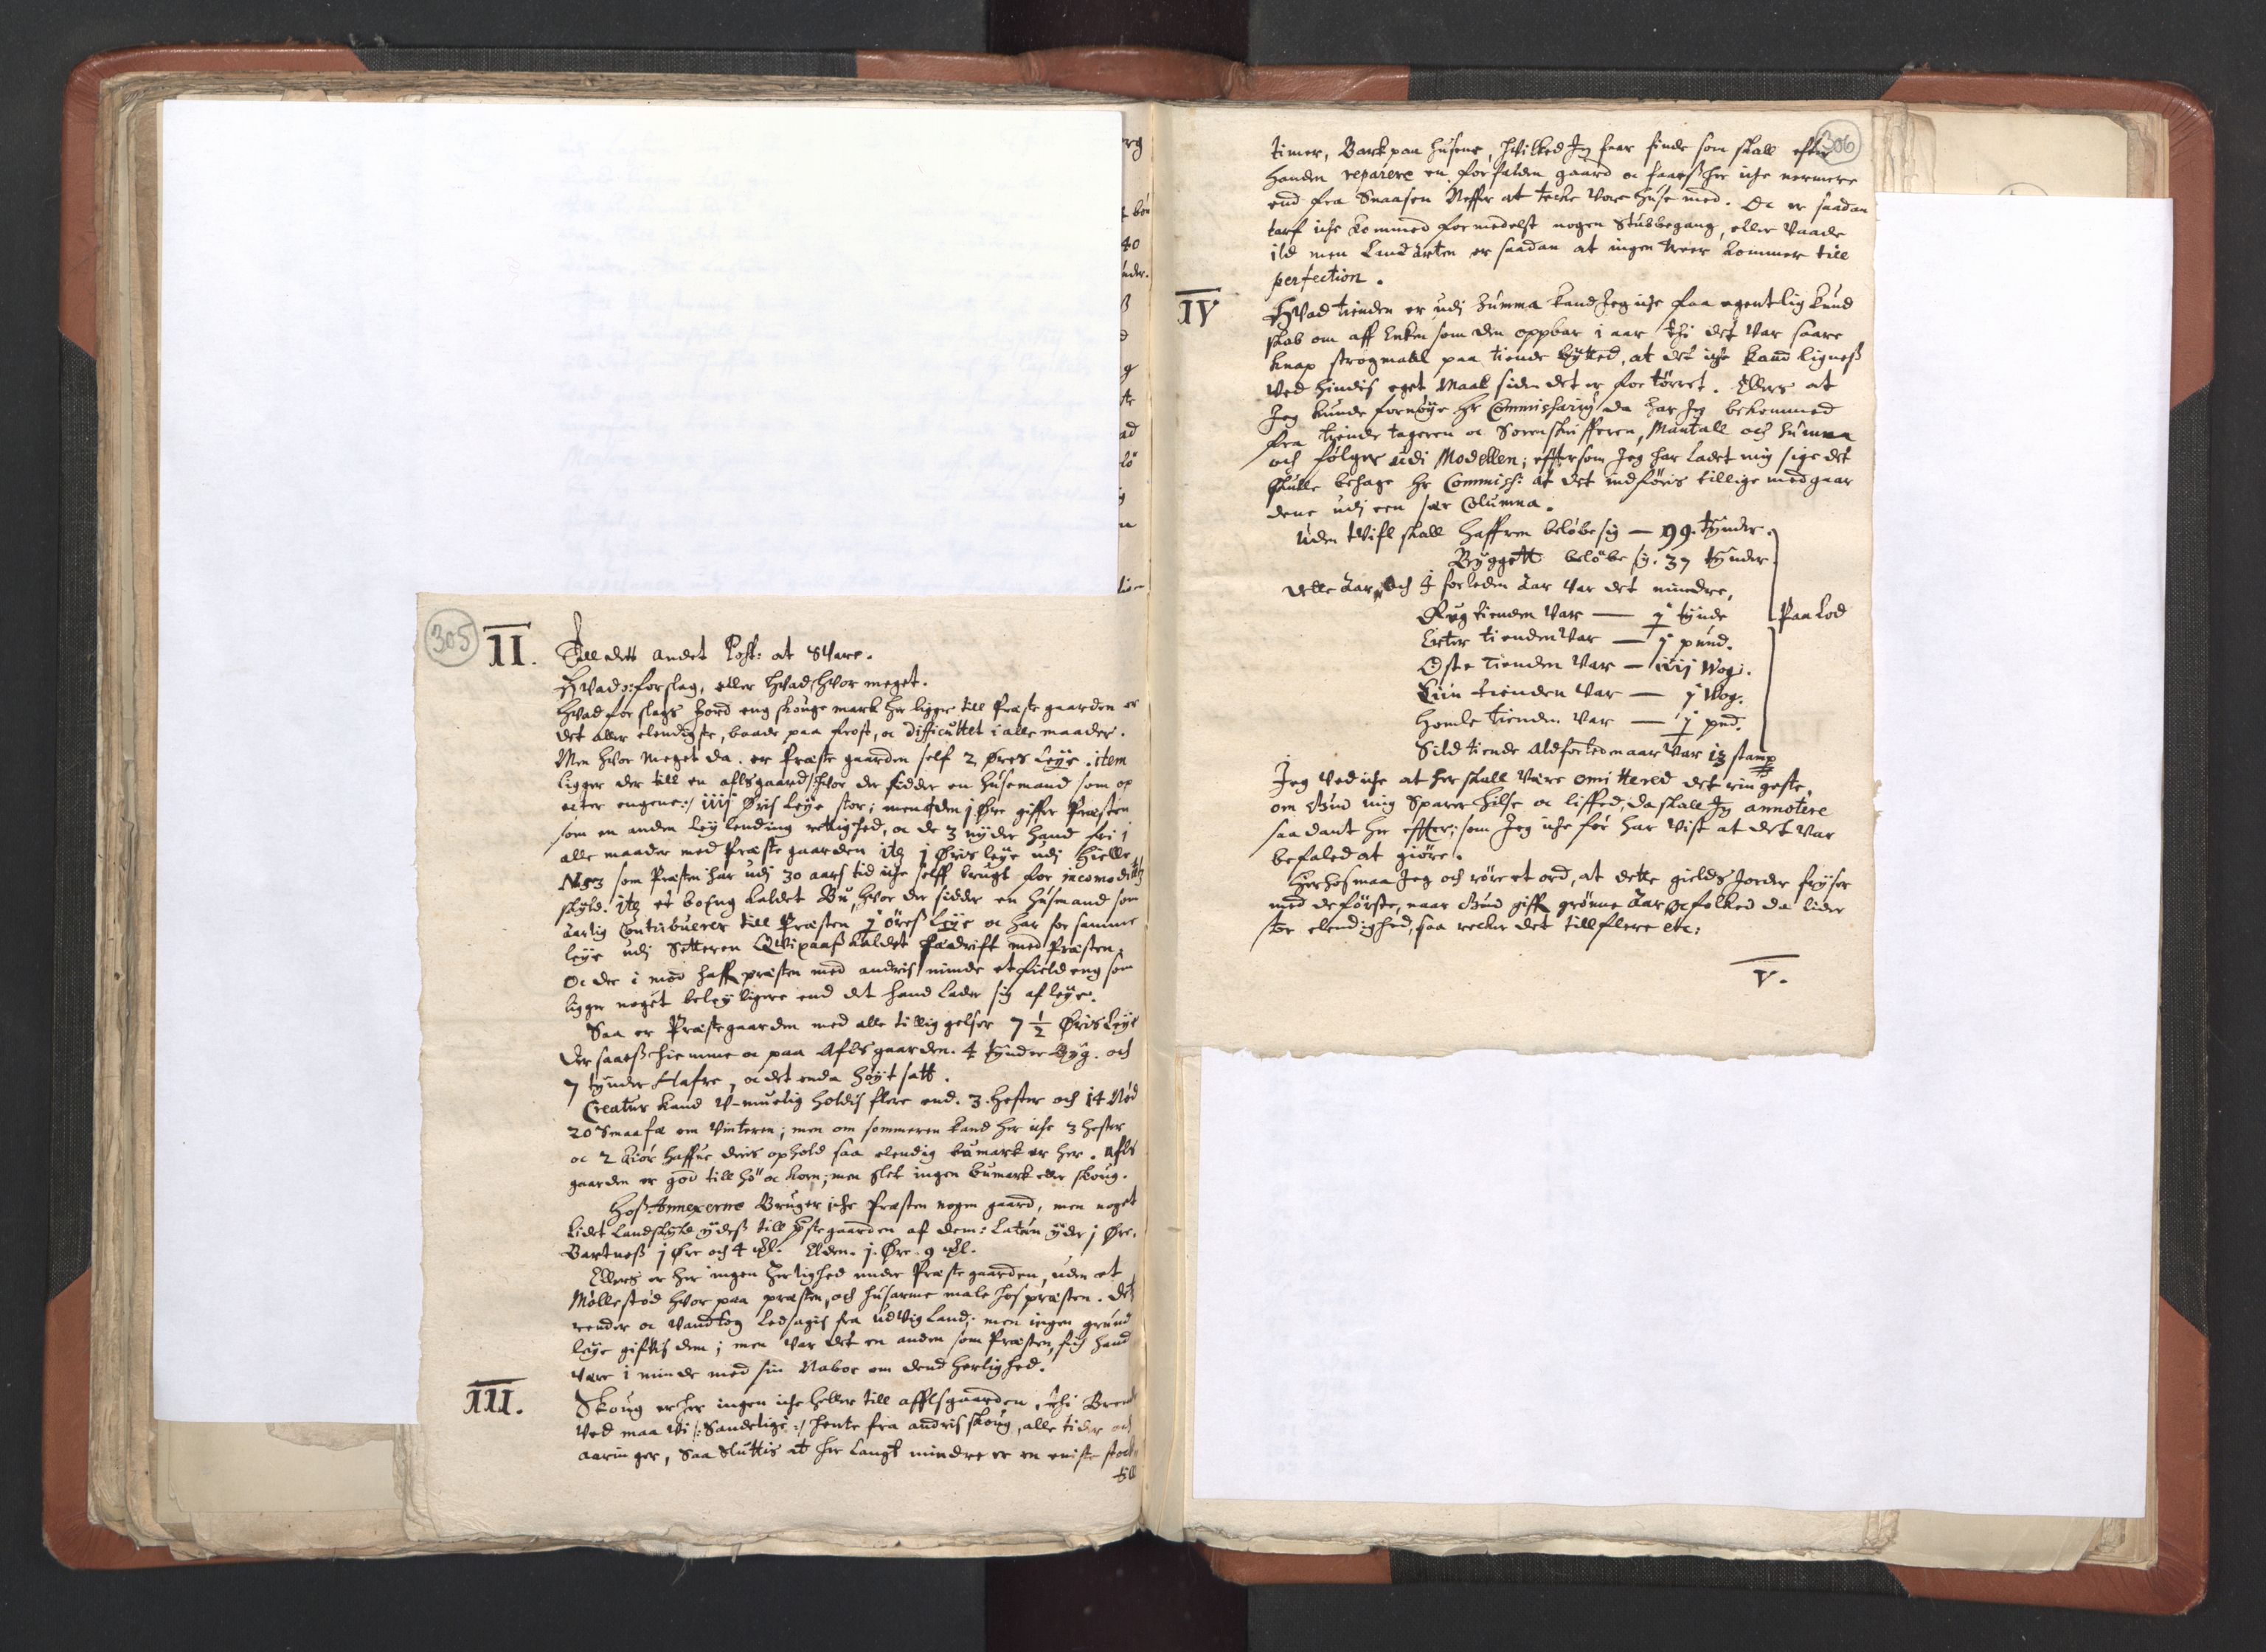 305
II. Till dett andet Post: at Svare.
Hvad ɔ: forslag, eller Hvad hvor meget.
Hvad for slags Jord eng skouge mark her ligger till Præstegaarden er
det aller elendigste, baade paa frost, oc difficultet i alle maader.
Men hvor meget da. er Præstegaarden self 2 Øres Leye. item
ligger der till en aflsgaard /: hvor der sidder en Husemand som op
acter engene :/ iiij Øris Leye stor; men den j Øre giffver Præsten
som en anden Leylending rettighed, oc de 3 nyder Hand fri i
alle maader med Præstegaarden itẽ j Øris leye udj Hielle
Nes som Præsten har udj 30 aars tid iche self brugt for incomoditetz
skyld. itẽ et boeng kaldet Bu, hvor der sidder en Husmand som
aarlig Contribuerer till Præsten j øres Leye oc har for samme
leye udj Setteren Qvipaas kaldet fædrift med Præsten.
Oc der i mod haffr præsten med andris minde et field eng som
ligger noget beleyligere end det hand lader sig afleye.
Saa er Præstegaarden med alle tilliggelser 7 ½ Øris Leye
Der saaes hiemme oc paa Aflsgaarden. 4 tynder Byg. och
7 tynder Hafre, oc det enda høyt satt.
Creatur kand V-muelig holdis flere end. 3. Hester och 14 Nød
20 Smaafæ om Vinteren; men om sommeren kand her iche 3 hester
oc 2 kiør haffve deris ophold saa elendig bumark er her. Afls
gaarden er god till hø oc korn; men slet ingen bumark eller skoug.
Hos Annexerne Bruger iche Præsten nogen gaard, men noget
lidet Landskyld ydes till Pstegaarden af dem: Laten yder j Øre.
Bartnes j Øre och 4 Elden. j. Øre. 9
Ellers er her ingen Herlighed under Præstegaarden, uden et
Møllestød hvor paa præsten, och husarme male hos præsten. Det
render oc Vandtog ledsagis fra Udvig Land; men ingen grund
leye giffves dem; men var det en anden som Præsten, fich hand
være i minde med sin Naboe om dend herlighed.
III. Skoug er her ingen iche heller till afflsgaarden, thi Brende
Ved maa Vi /: Sandelige :/ hente fra andris skoug, alle tider och
aaringer, Saa Sluttis at her langt mindre er en eniste stoch
till
306
timer, Bark paa Husene, Hvilked Jeg faar sinde som skall efter
Handen reparere en forfalden gaard oc faaes her iche nermere
end fra Snaasen Neffer at teche Vore Huse med. Oc er saadan
tarf iche kommed formedelst nogen Stubbegang, eller Vaade
ild men Landarten er saadan at ingen træer kommer till
perfection.
IV Hvad tienden er udj Summa kand Jeg iche faa egentlig kund
skab om aff Enken som den oppbar i aar thi det Var saare
knap strøgmaall paa tiende bytted, at det iche kand lignes
Ved hindis eget Maal siden det er for tørret. Ellers at
Jeg kunde fornøye Hr Commissarij da har Jeg bekommed
fra tiende tageren oc Sorenskrifferen, Mantall och Summa
och følger udi Modellen; efftersom Jeg har ladet mig sige det
skulle behage Hr Commiss: at det indføris tillige med gaar
dene udj een sær Columna.
Uden tvifl skall Haffren beløbe sig — 99. tynder.
Bygget beløbe sig. 37 tynder
dette Aar, och J forleden Aar var det mindre,
Rug tienden Var — j tynde
Erter tienden Var — j pund.
Oste Tienden Var — iiij Wog.
Liin tienden Var — j Wog.
Homle tienden Var — j pnd.
Paa Lod
Sild tiende Aldforteenaar Var 13 stamp
Jeg Ved iche at her skall Være omittered det ringeste,
om Gud mig Sparer Hilse oc liffed, da skall Jeg annotere
saadant her effter; som Jeg iche før har Vist at det Var
befaled at giøre.
Herhos maa Jeg och røre et ord, at dette gields Jorder fryser
med de første, naar Gud giffr grønne Aar oc folked da lider
stor elendighed, saa recker det till flere etc:
V.